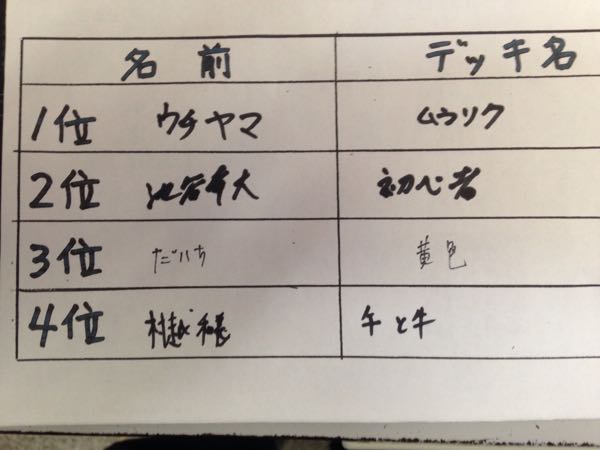 名前 デッキ名
1位 ウチヤマ ムウソク
2位 池谷幸大 初心者
3位 だいち 黄色
4位 村越様 牛と牛